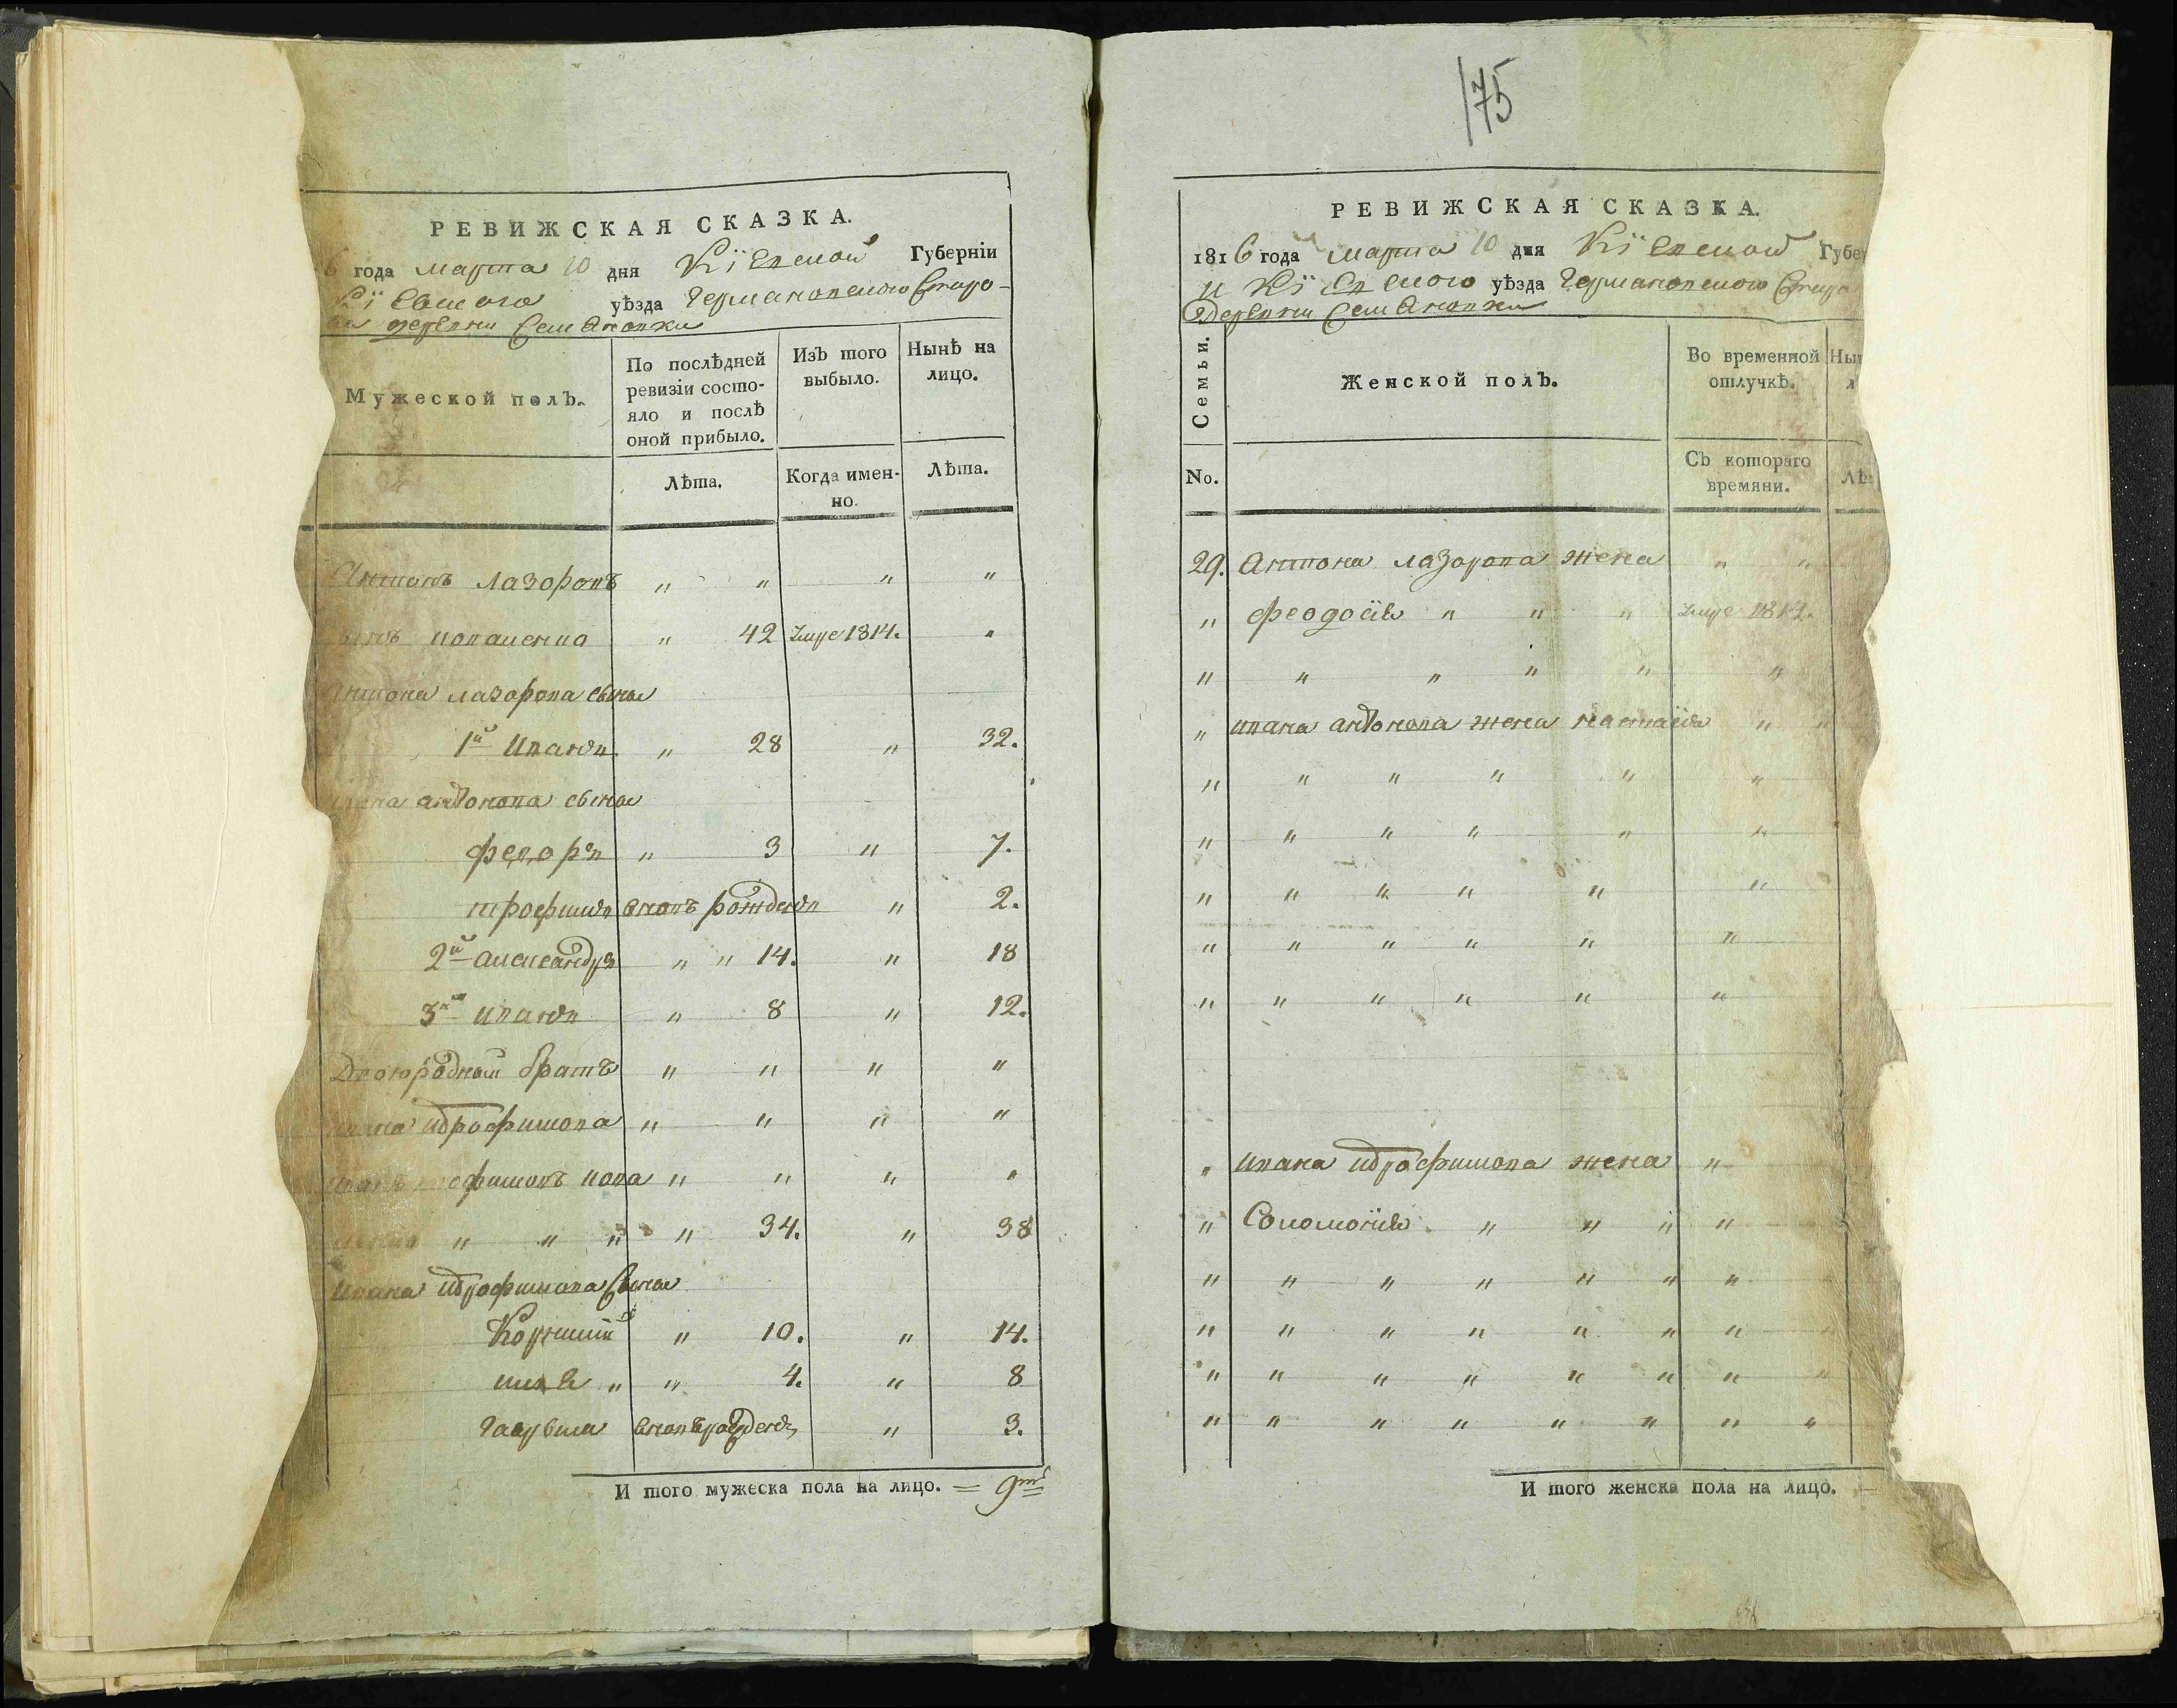 РЕВИЖСКАЯ СКАЗКА.
6 года марта 10 дня Кіевской Губерніи
Кіевского уѣзда Германовского Старо-
деревни Семеновки
Мужеской полъ.
По послѣдней ревизіи состояло и послѣ оной прибыло.
Изъ того выбыло.
Нынѣ на лицо.
Лѣта.
Когда именно.
Лѣта.
Антонъ Лазоровъ " " " "
" 42 умре 1814. "
Антона Лазорова сыны
1й Иванъ " 28 " 32.
Ивана Антонова сыны
Федоръ " 3 " 7.
Трофимъ вновь рожденъ " 2.
2й Александръ " " 14. " 18
3й Иванъ " 8 " 12.
Двоюродной братъ " " " "
Ивана Трофимова " " " "
" " " "
" " " " 34. " 38
Ивана Трофимова сыны
Корнилий " 10. " 14.
" " 4. " 8
Гаврыла вновь рожденъ " 3.
И того мужеска пола на лицо. = 9ть
175
РЕВИЖСКАЯ СКАЗКА.
1816 года марта 10 дня Кіевской Губе
и Кіевского уѣзда Германовского Старо
Деревни Семеновки
Семьи.
Женской полъ.
Во временной отлучкѣ.
Нын
No.
Съ котораго времяни.
Лѣ
29. Антона Лазорова жена " "
" Феодосія " " " умре 1814.
" " " " " "
" Ивана Антонова жена Настасія " "
" " " " " "
" " " " " "
" " " " " "
" " " " " "
" " " " " "
" Ивана Трофимова жена "
" Соломонія " " " "
" " " " " " "
" " " " " " " "
" " " " " " " "
" " " " " " " "
И того женска пола на лицо.